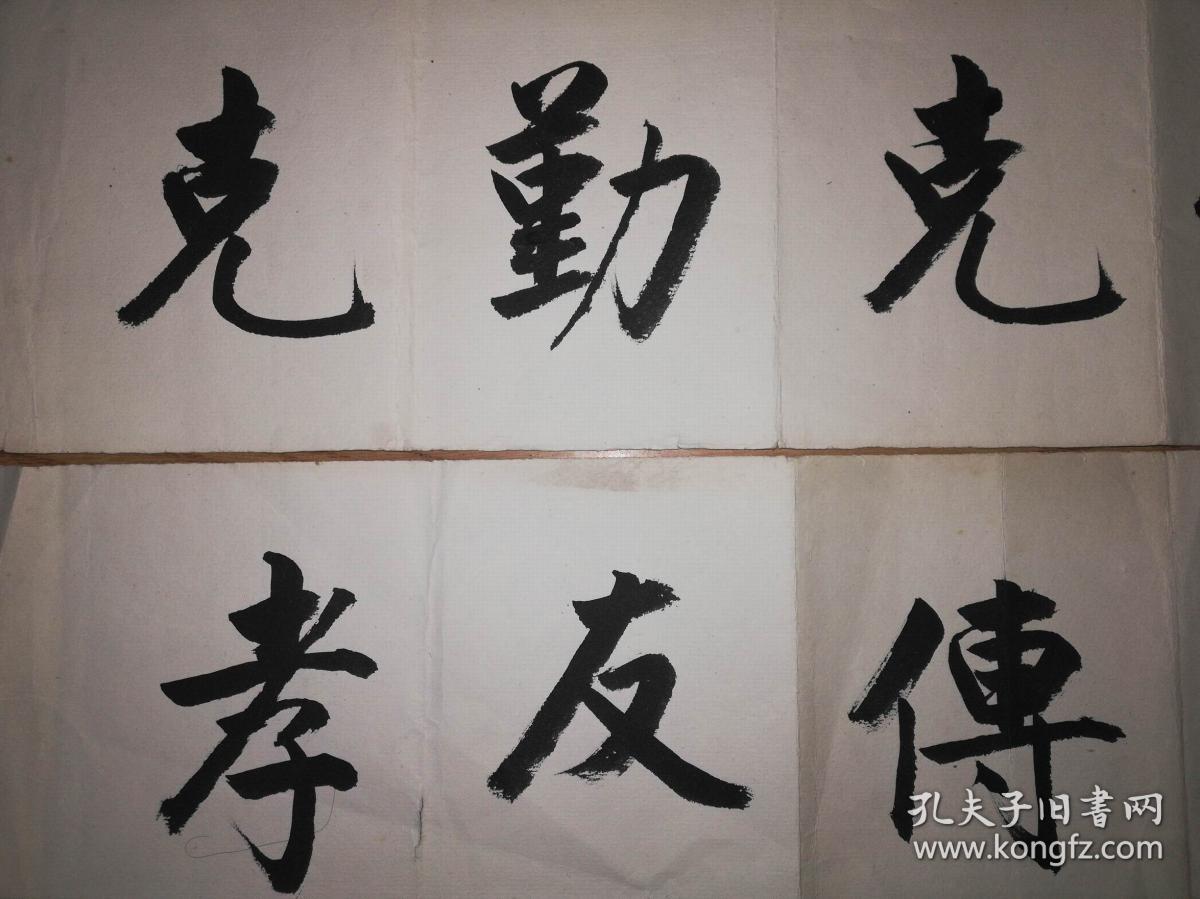 克勤克
孝友傳
孔夫子旧書网
www.kongfz.com